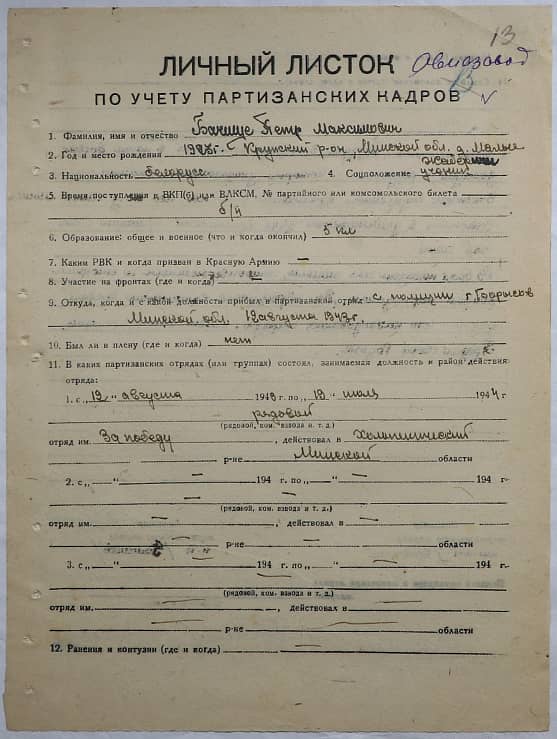 13
Авиазавод
В
ЛИЧНЫЙ ЛИСТОК
ПО УЧЕТУ ПАРТИЗАНСКИХ КАДРОВ
1. Фамилия, имя и отчество Петр Максимович
2. Год и место рождения Крупский р-он, Минской обл. д. Малые
3. Национальность белорус 4. Соцположение ученик
5. Время поступления в ВКП(б) или ВЛКСМ, № партийного или комсомольского билета
б/п
6. Образование: общее и военное (что и когда окончил) 5 кл
7. Каким РВК и когда призван в Красную Армию —
8. Участие на фронтах (где и когда) —
9. Откуда, когда и с какой должности прибыл в партизанский отряд с полиции г. Борисов
Минской обл. 12 августа 1943 г.
10. Был ли в плену (где и когда) нет
11. В каких партизанских отрядах (или группах) состоял, занимаемая должность и район действия
отряда:
1. с „12" августа 1943 г. по „13" июля 1944 г.
рядовой
(рядовой, ком. взвода и т. д.)
отряд им. За победу, действовал в Холопеничский
р-не Минской области
2. с „—" — 194 г. по „—" — 194 г.
(рядовой, ком. взвода и т. д.)
отряд им. —, действовал в —
р-не — области
3. с „—" — 194 г. по „—" — 194 г.
(рядовой, ком. взвода и т. д.)
отряд им. —, действовал в —
р-не — области
12. Ранения и контузии (где и когда) —